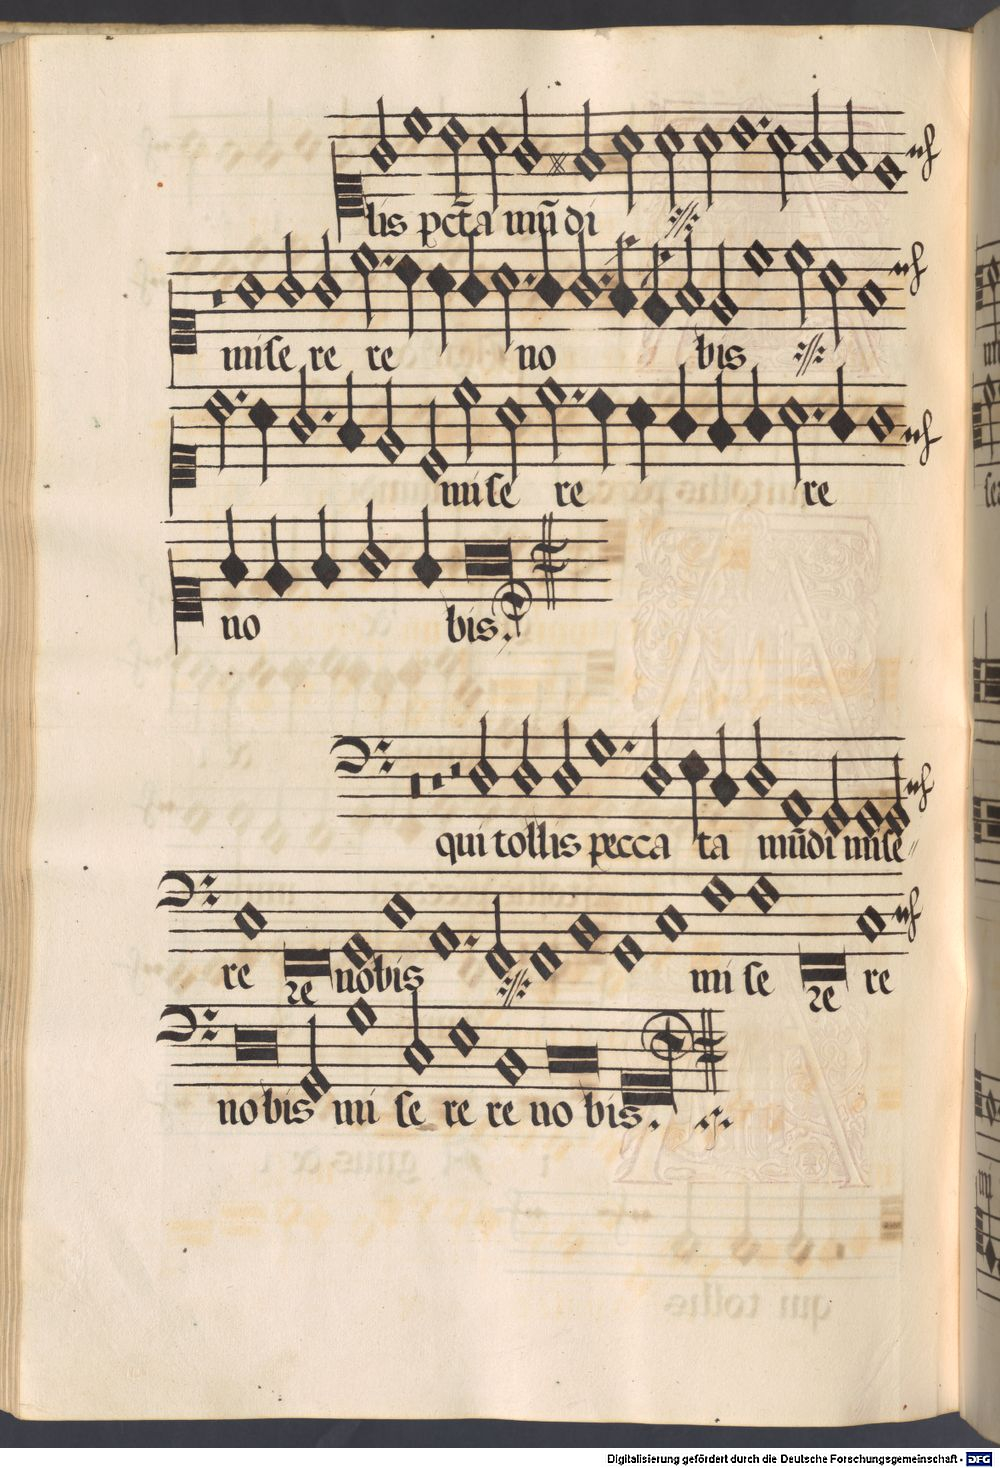 lis pct̄a mūdi
miſe re re no bis
miſe re re
no bis.
qui tollis pecca ta mūdi miſe
re re nobis mi ſe re re
nobis mi ſe re re no bis.
Digitalisierung gefördert durch die Deutsche Forschungsgemeinschaft - DFG